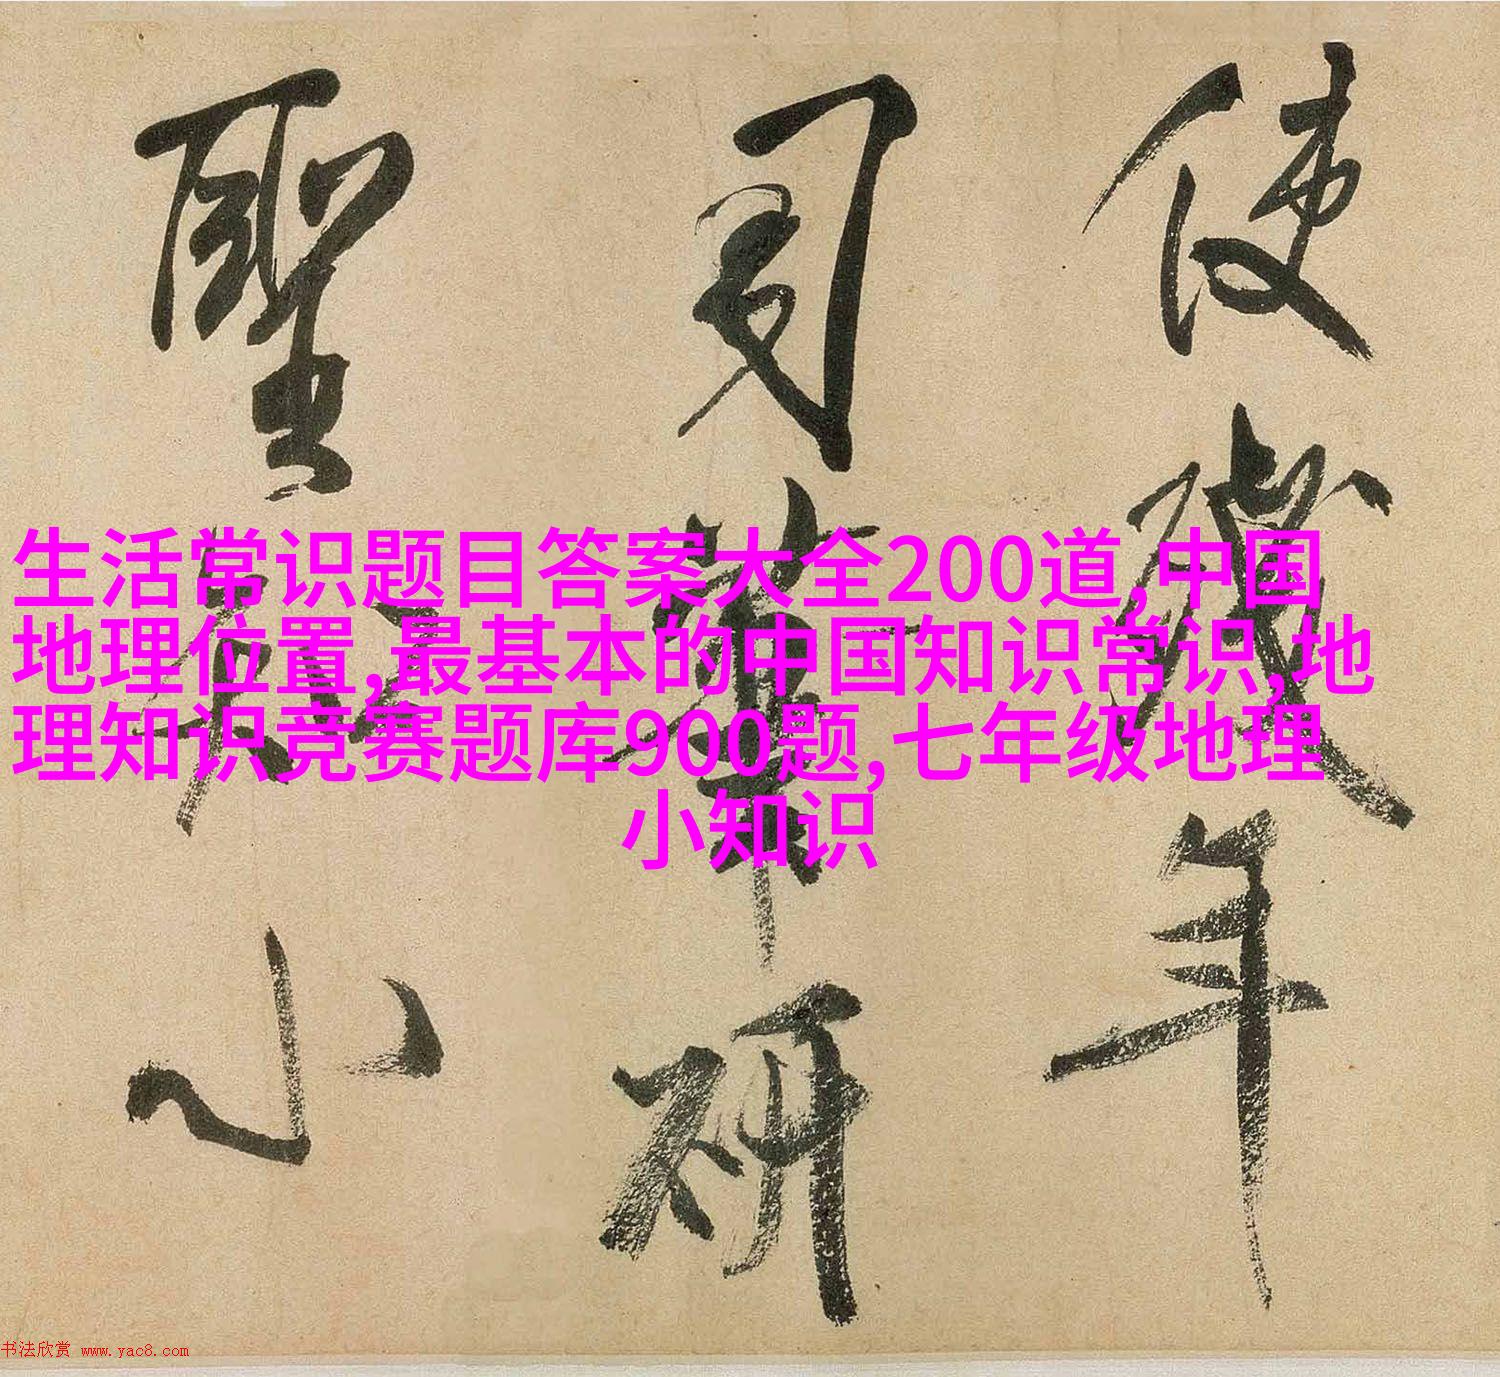 使残年
司華研
聖知小
生活常识题目答案大全200道,中国
地理位置,最基本的中国知识常识,地
理知识竞赛题库900题,七年级地理
小知识
书法欣赏 www.yac8.com